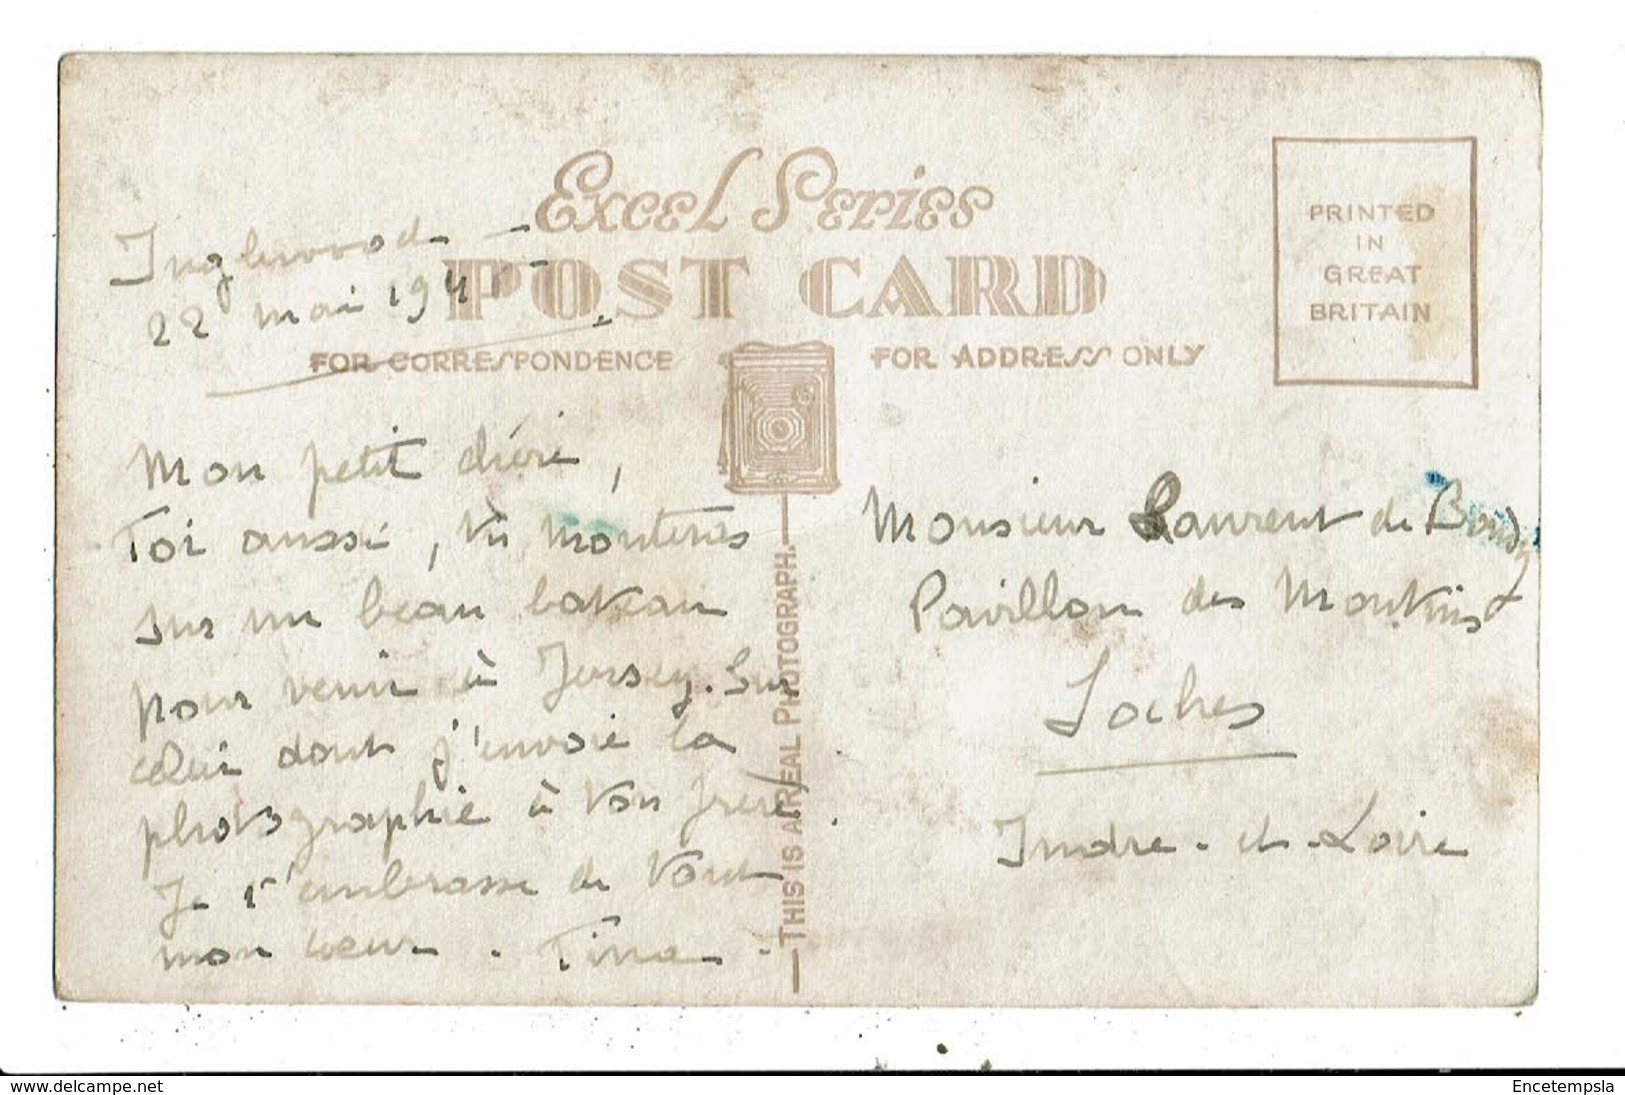 Excel Series
POST CARD
FOR CORRESPONDENCE
FOR ADDRESS ONLY
PRINTED
IN
GREAT
BRITAIN
Inglewood
22 mai 194
Mon petit chéri,
Toi aussi, tu monteras
sur un beau bateau
pour venir à Jersey. Sur
celui dont j'envoie la
photographie à ton frère.
Je t'embrasse de tout
mon coeur. Tina.
THIS IS A REAL PHOTOGRAPH.
Monsieur Laurent de
Pavillon des
Loches
Indre-et-Loire
www.delcampe.net
Encetempsla